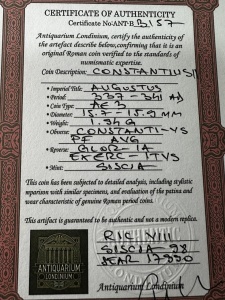 CERTIFICATE OF AUTHENTICITY
Certificate No:ANT-B 3157
Antiquarium Londinium, certify the authenticity of
the artefact describe below,confirming that it is an
original Roman coin verified to the standards of
numismatic expertise.
Coin Description: CONSTANTIUS II
• Imperial Title: AUGUSTUS
• Period: 337-341 AD
• Coin Type: AE 3
• Diameter: 15.7-15.9 MM
• Weight: 1.54 G
• Obverse: CONSTANTI-VS
PF AVG
• Reverse: GLOR-IA
EXERC-ITVS
• Mint: SISCIA
This coin has been subjected to detailed analysis, including stylistic
comparison with similar specimens, and evaluation of the patina and
wear characteristic of genuine Roman period coins.
This artifact is guaranteed to be authentic and not a modern replica.
RIC VIII
SISCIA-98
SEAR
ANTIQUARIUM
LONDINIUM
Antiquarium Londinium